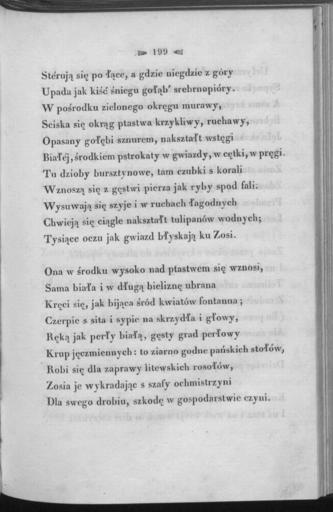 199
Stérują się po łące, a gdzie niegdzie z góry
Upada jak kiść śniegu gołąb' srebrnopióry.
W pośrodku zielonego okręgu murawy,
Sciska się okrąg ptastwa krzykliwy, ruchawy,
Opasany gołębi sznurem, nakształt wstęgi
Białéj, środkiem pstrokaty w gwiazdy, w cętki, w pręgi.
Tu dzioby bursztynowe, tam czubki s korali
Wznoszą się z gęstwi pierza jak ryby spod fali.
Wysuwają się szyje i w ruchach łagodnych
Chwieją się ciągle nakształt tulipanów wodnych;
Tysiące oczu jak gwiazd błyskają ku Zosi.
Ona w środku wysoko nad ptastwem się wznosi,
Sama biała i w długą bieliznę ubrana
Kręci się, jak bijąca śród kwiatów fontanna;
Czerpie s sita i sypie na skrzydła i głowy,
Ręką jak perły białą, gęsty grad perłowy
Krup jęczmiennych: to ziarno godne pańskich stołów,
Robi się dla zaprawy litewskich rosołów,
Zosia je wykradając s szafy ochmistrzyni
Dla swego drobiu, szkodę w gospodarstwie czyni.